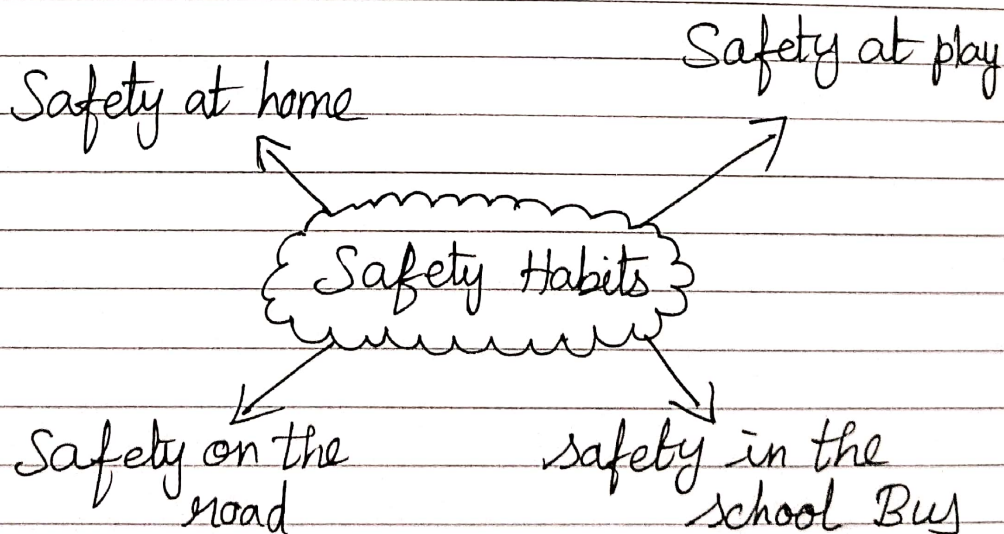 Safety at play
Safety at home
Safety Habits
Safety on the
road
safety in the
school Bus